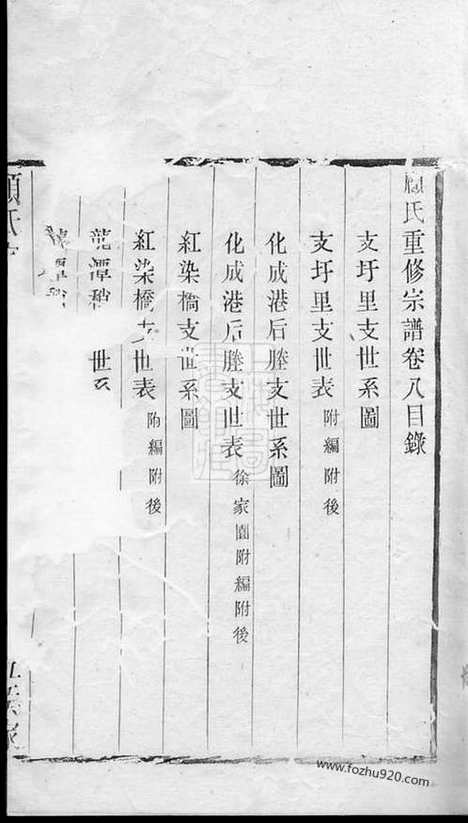 顧氏重修宗譜卷八目錄
支圩里支世系圖
支圩里支世表 附編附後
化成港后塍支世系圖
化成港后塍支世表 徐家園附編附後
紅染橋支世系圖
紅染橋支世表 附編附後
龍潭
世
龍潭
www.fozhu920.com